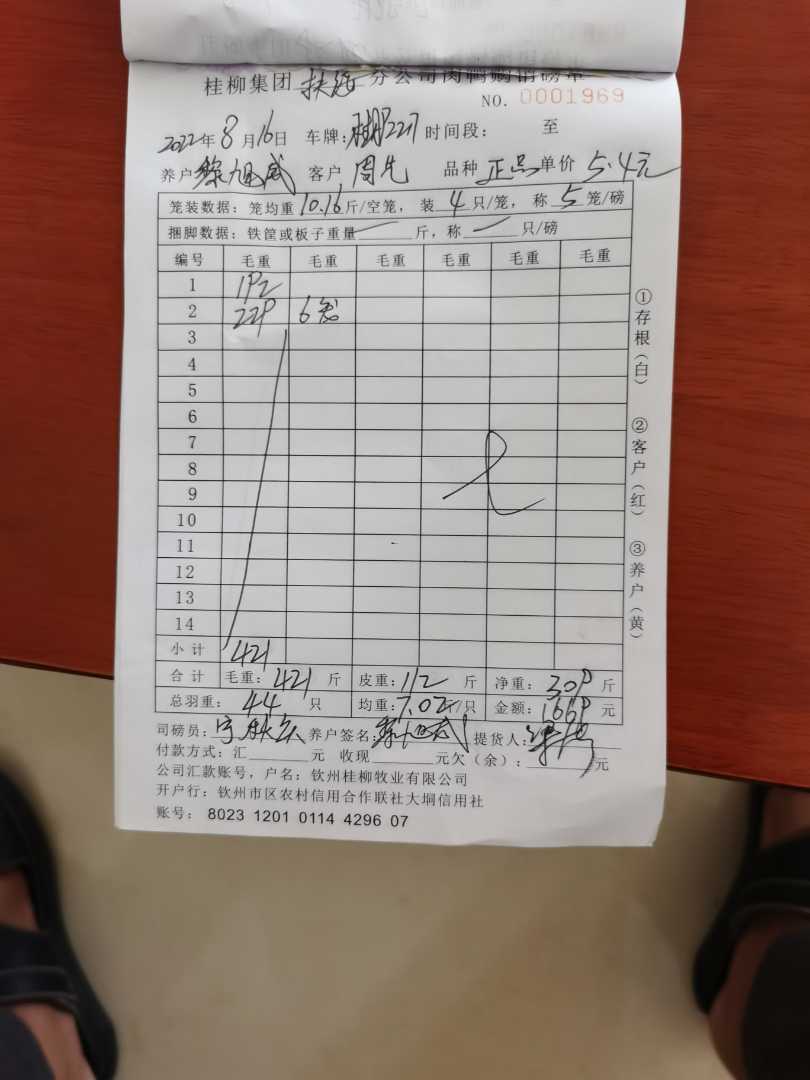 桂柳集团 扶绥 分公司肉鸭购销磅单
NO. 0001969
2022年 8 月 16日 车牌: 时间段: 至
养户 徐旭威 客户 周先 品种 正品 单价 5.4元
笼装数据: 笼均重 10.16 斤/空笼, 装 4 只/笼, 称 5 笼/磅
捆脚数据: 铁筐或板子重量 — 斤, 称 — 只/磅
编号 毛重 毛重 毛重 毛重 毛重 毛重
1 192
2 229 6笼
3
4
5
6
7
8
9
10
11
12
13
14
小计 421
合计 毛重: 421 斤 皮重: 112 斤 净重: 309 斤
总羽重: 44 只 均重: 7.02斤/只 金额: 1669 元
司磅员: 养户签名: 徐旭威 提货人:
付款方式: 汇 元 收现 元欠(余): 元
公司汇款账号, 户名: 钦州桂柳牧业有限公司
开户行: 钦州市区农村信用合作联社大垌信用社
账号: 8023 1201 0114 4296 07
①存根(白)
②客户(红)
③养户(黄)